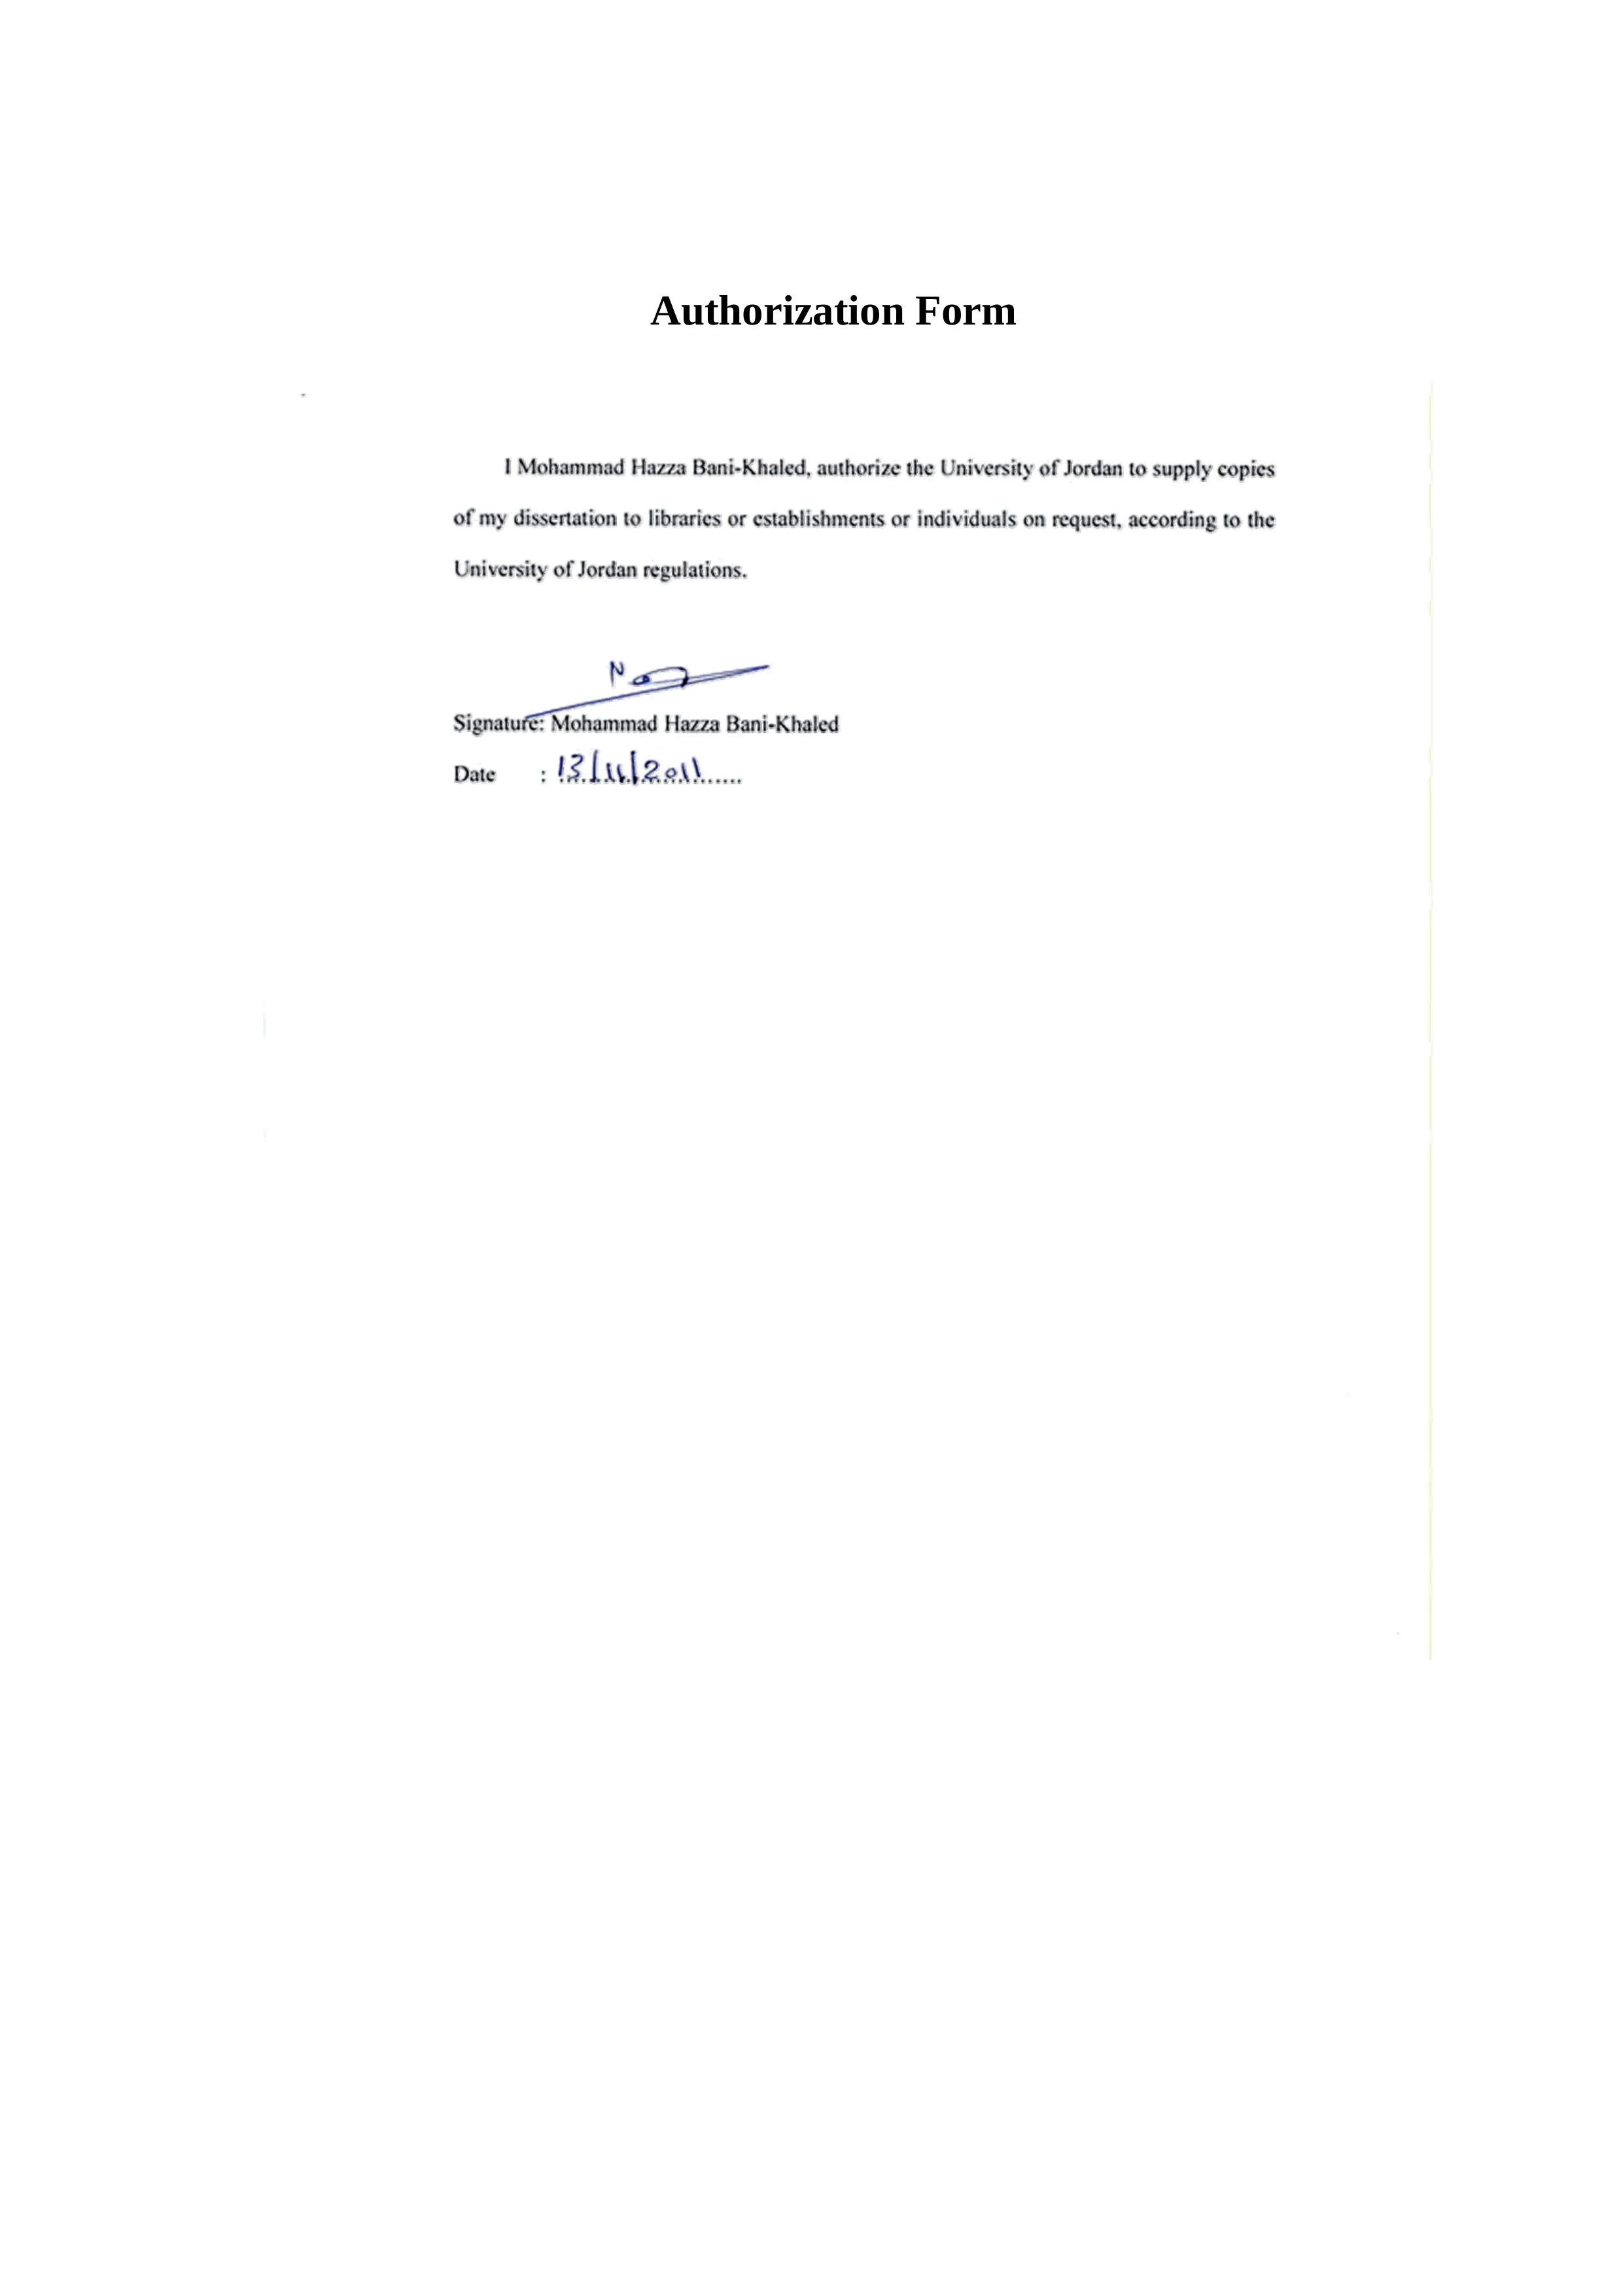 Authorization Form
I Mohammad Hazza Bani-Khaled, authorize the University of Jordan to supply copies
of my dissertation to libraries or establishments or individuals on request, according to the
University of Jordan regulations.
Signature: Mohammad Hazza Bani-Khaled
Date : 13/11/2011